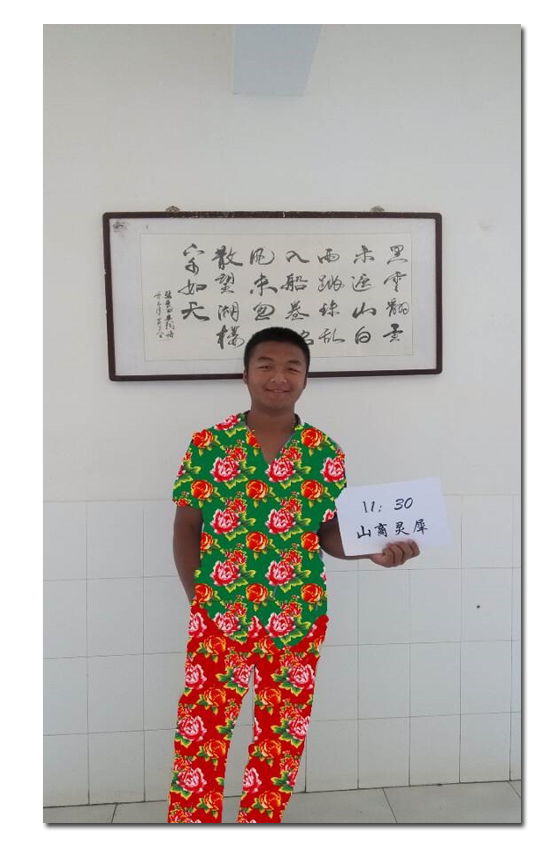 黑雲翻墨
未遮山白
雨跳珠乱
入船卷地
風来忽
散望湖樓
下水如天
11:30
山离灵犀